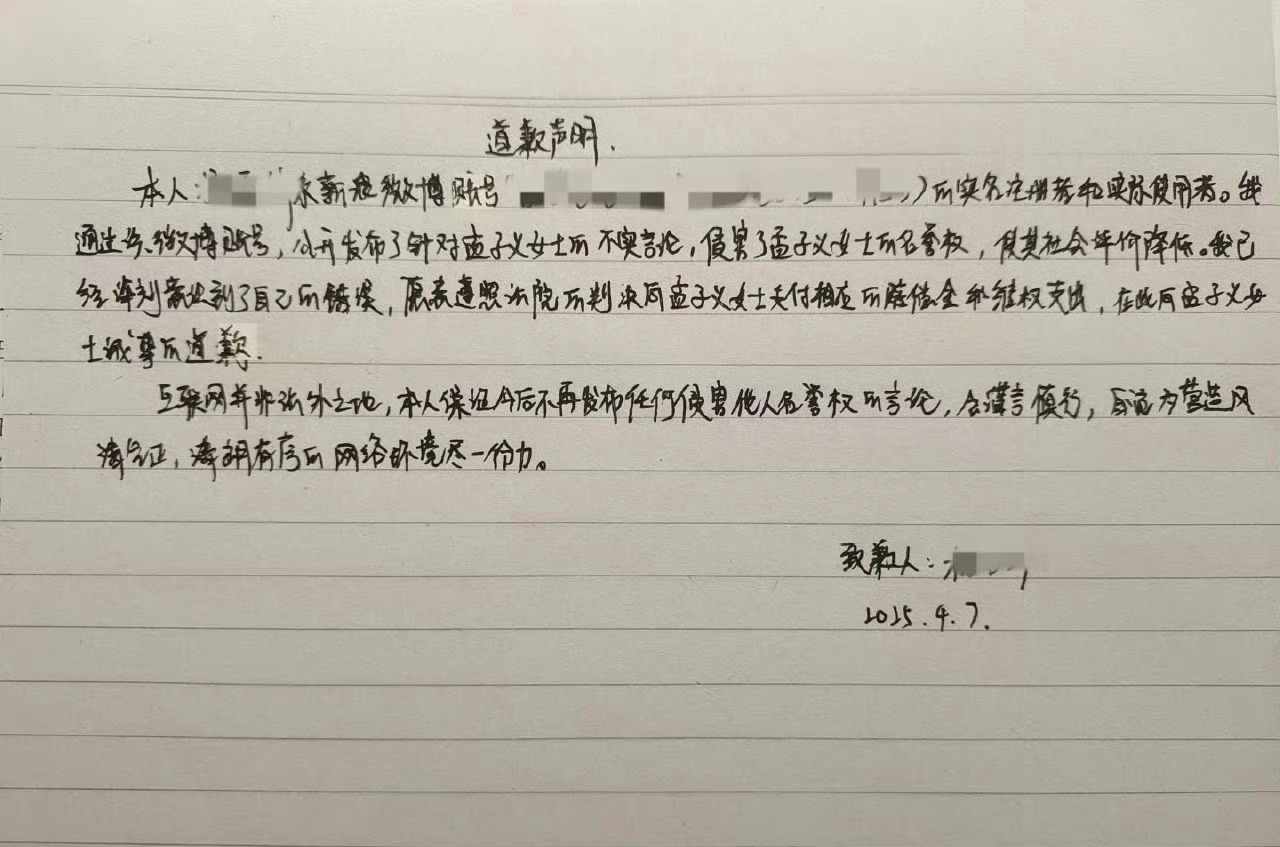 道歉声明.
本人: 系新浪微博账号 )的实名注册者和实际使用者。我
通过该微博账号,公开发布了针对孟子义女士的不实言论,侵害了孟子义女士的名誉权,使其社会评价降低。我已
经深刻意识到了自己的错误,愿意遵照法院的判决向孟子义女士支付相应的赔偿金和维权支出,在此向孟子义女
士诚挚的道歉.
互联网并非法外之地,本人保证今后不再发布任何侵害他人名誉权的言论,会谨言慎行,为营造风
清气正,清朗有序的网络环境尽一份力。
致歉人:
2025.4.7.